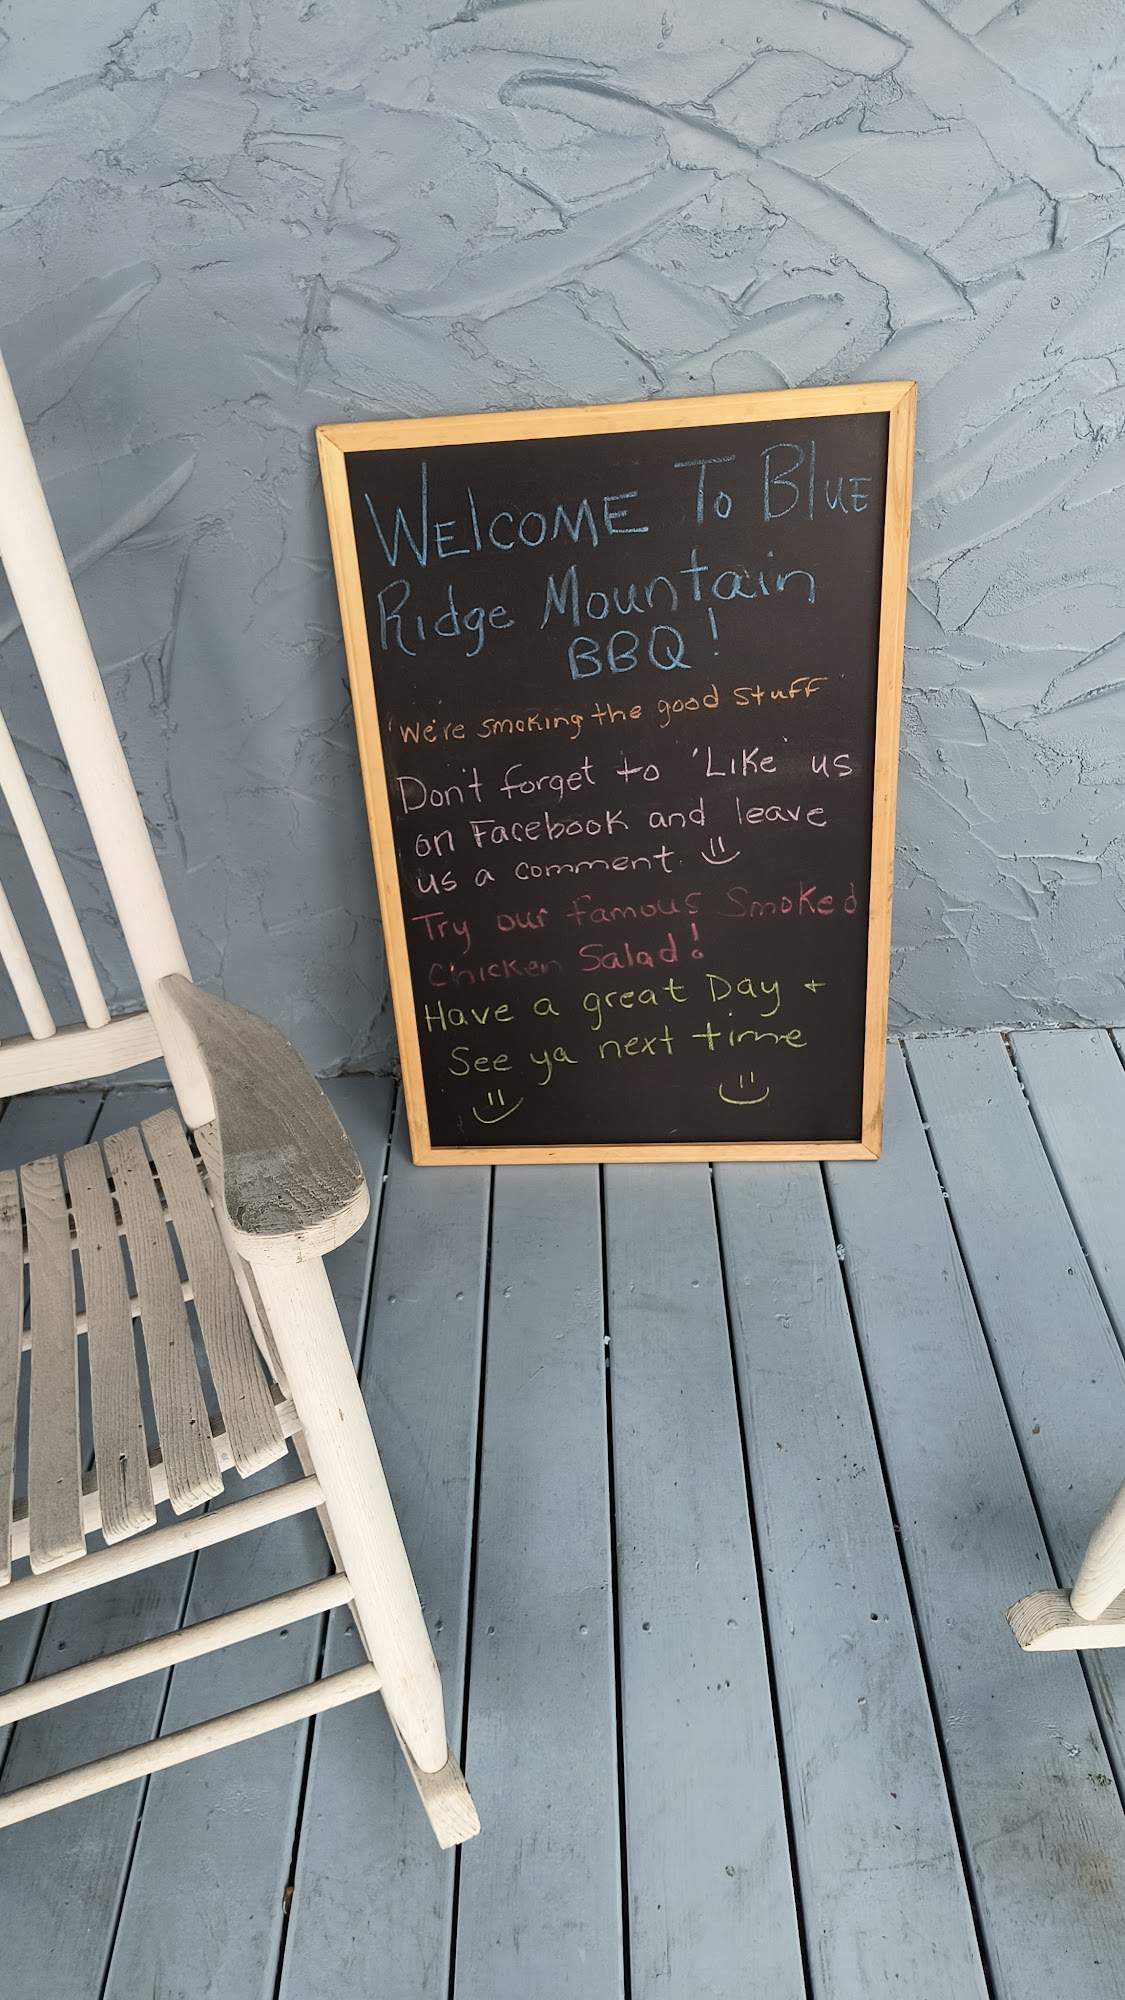 WElcOME To BluE
Ridge Mountain
BBQ!
'we're smoking the good stuff'
Don't forget to 'Like' us
on Facebook and leave
us a comment.
Try our famous Smoked
Chicken Salad!
Have a great Day +
See ya next time